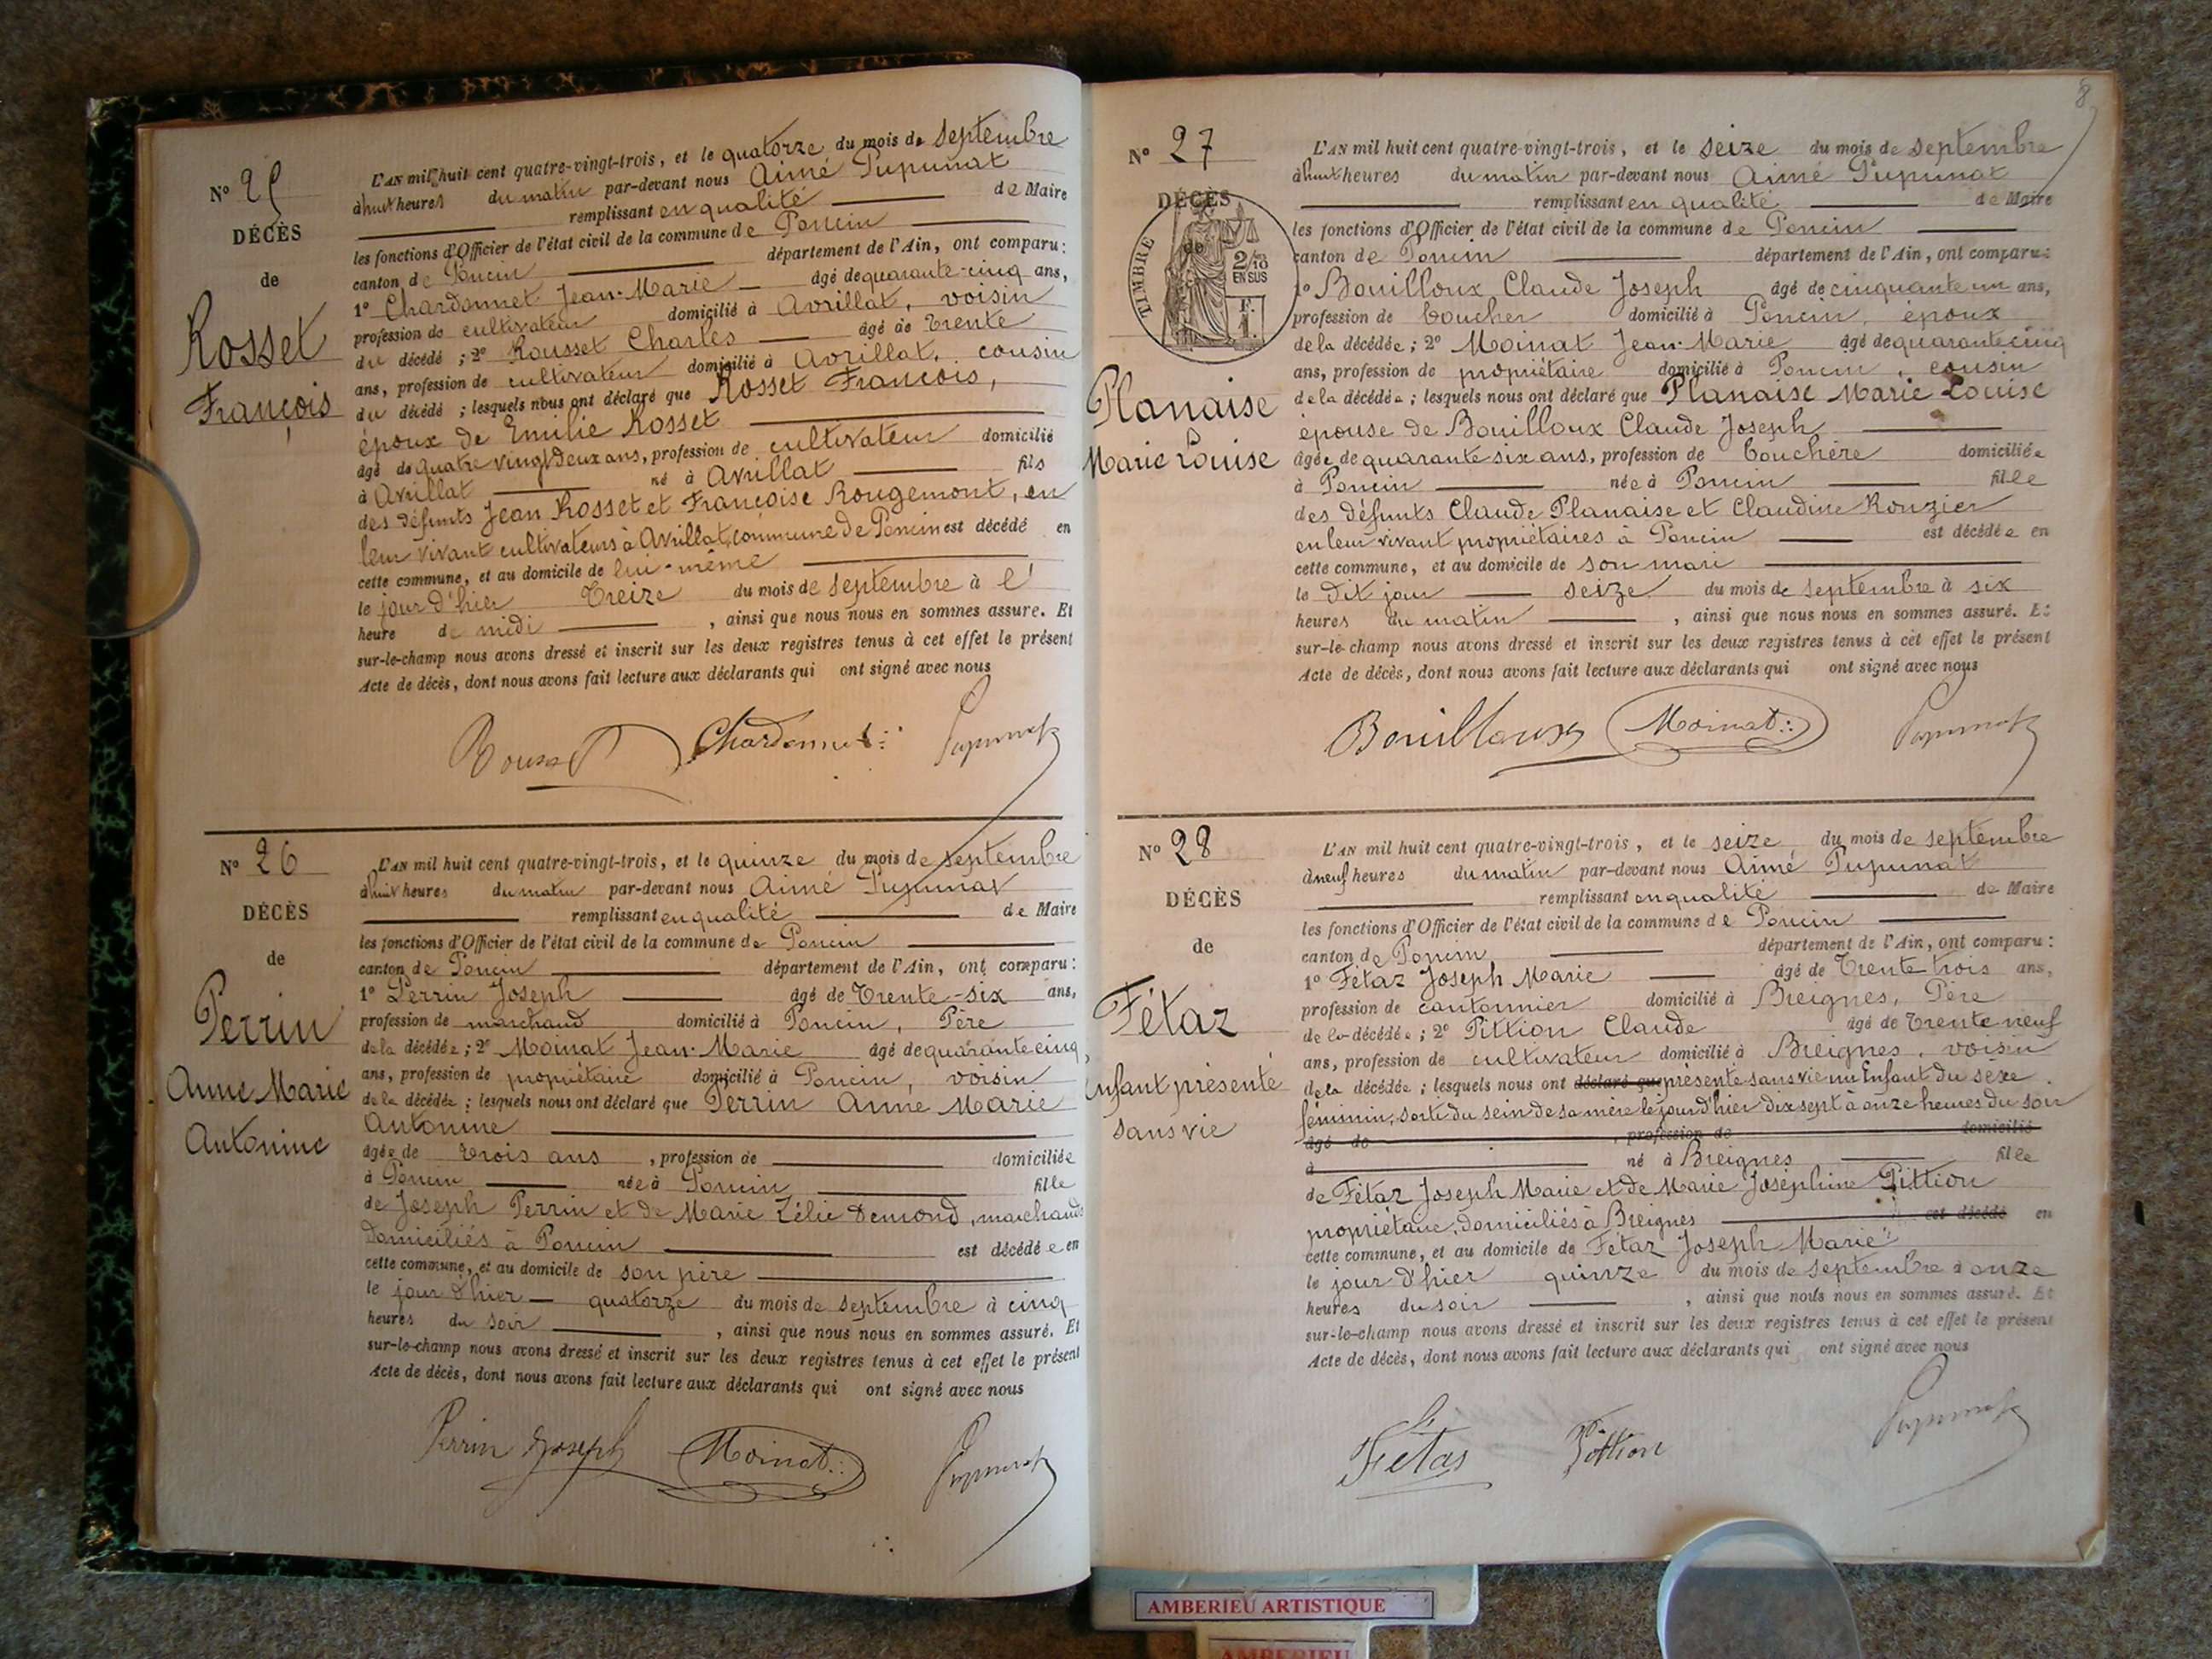 N° 25
DÉCÈS
de
Rosset
François
L'AN mil huit cent quatre-vingt-trois, et le quatorze du mois de septembre
à huit heures du matin par-devant nous Aimé Pupunat
remplissant en qualité de Maire
les fonctions d'Officier de l'état civil de la commune de Poncin
canton de Poncin département de l'Ain, ont comparu :
1° Chardonnet Jean-Marie âgé de quarante-cinq ans,
profession de cultivateur domicilié à Avrillat, voisin
du décédé ; 2° Rousset Charles âgé de trente
ans, profession de cultivateur domicilié à Avrillat, cousin
du décédé ; lesquels nous ont déclaré que Rosset François,
époux de Emilie Rosset
âgé de quatre vingt deux ans, profession de cultivateur domicilié
à Avrillat né à Avrillat fils
des défunts Jean Rosset et Françoise Rougemont, en
leur vivant cultivateurs à Avrillat, commune de Poncin est décédé en
cette commune, et au domicile de lui-même
le jour d'hier treize du mois de septembre à l'
heure de midi , ainsi que nous nous en sommes assuré. Et
sur-le-champ nous avons dressé et inscrit sur les deux registres tenus à cet effet le présent
Acte de décès, dont nous avons fait lecture aux déclarants qui ont signé avec nous
Rousset Chardonnet Pupunat
N° 26
DÉCÈS
de
Perrin
Anne Marie
Antonine
L'AN mil huit cent quatre-vingt-trois, et le quinze du mois de septembre
à huit heures du matin par-devant nous Aimé Pupunat
remplissant en qualité de Maire
les fonctions d'Officier de l'état civil de la commune de Poncin
canton de Poncin département de l'Ain, ont comparu :
1° Perrin Joseph âgé de trente-six ans,
profession de marchand domicilié à Poncin, Père
de la décédée ; 2° Moinat Jean-Marie âgé de quarante cinq
ans, profession de propriétaire domicilié à Poncin, voisin
de la décédée ; lesquels nous ont déclaré que Perrin Anne Marie
Antonine
âgée de trois ans , profession de domiciliée
à Poncin née à Poncin fille
de Joseph Perrin et de Marie Zélie Demond, marchands
domiciliés à Poncin est décédée en
cette commune, et au domicile de son père
le jour d'hier quatorze du mois de septembre à cinq
heures du soir , ainsi que nous nous en sommes assuré. Et
sur-le-champ nous avons dressé et inscrit sur les deux registres tenus à cet effet le présent
Acte de décès, dont nous avons fait lecture aux déclarants qui ont signé avec nous
Perrin Joseph Moinat Pupunat
8
N° 27
DÉCÈS
de
TIMBRE
2/10
EN SUS
F.
1.
Planaise
Marie Louise
L'AN mil huit cent quatre-vingt-trois, et le seize du mois de septembre
à huit heures du matin par-devant nous Aimé Pupunat
remplissant en qualité de Maire
les fonctions d'Officier de l'état civil de la commune de Poncin
canton de Poncin département de l'Ain, ont comparu :
1° Bouilloux Claude Joseph âgé de cinquante un ans,
profession de boucher domicilié à Poncin, époux
de la décédée ; 2° Moinat Jean-Marie âgé de quarante cinq
ans, profession de propriétaire domicilié à Poncin, cousin
de la décédée ; lesquels nous ont déclaré que Planaise Marie Louise
épouse de Bouilloux Claude Joseph
âgée de quarante six ans, profession de bouchère domiciliée
à Poncin née à Poncin fille
des défunts Claude Planaise et Claudine Rouzier
en leur vivant propriétaires à Poncin est décédée en
cette commune, et au domicile de son mari
le dit jour seize du mois de septembre à six
heures du matin , ainsi que nous nous en sommes assuré. Et
sur-le-champ nous avons dressé et inscrit sur les deux registres tenus à cet effet le présent
Acte de décès, dont nous avons fait lecture aux déclarants qui ont signé avec nous
Bouilloux Moinat Pupunat
N° 28
DÉCÈS
de
Fétaz
Enfant présenté
sans vie
L'AN mil huit cent quatre-vingt-trois, et le seize du mois de septembre
à neuf heures du matin par-devant nous Aimé Pupunat
remplissant en qualité de Maire
les fonctions d'Officier de l'état civil de la commune de Poncin
canton de Poncin département de l'Ain, ont comparu :
1° Fétaz Joseph Marie âgé de trente trois ans,
profession de cantonnier domicilié à Breignes, Père
de la décédée ; 2° Pittion Claude âgé de trente neuf
ans, profession de cultivateur domicilié à Breignes, voisin
de la décédée ; lesquels nous ont déclaré que présenté sans vie un Enfant du sexe
féminin, sorti du sein de sa mère le jour d'hier dix sept à onze heures du soir
âgé de , profession de domicilié
à né à Breignes fille
de Fétaz Joseph Marie et de Marie Joséphine Pittion
propriétaire, domiciliés à Breignes est décédé en
cette commune, et au domicile de Fétaz Joseph Marie
le jour d'hier quinze du mois de septembre à onze
heures du soir , ainsi que nous nous en sommes assuré. Et
sur-le-champ nous avons dressé et inscrit sur les deux registres tenus à cet effet le présent
Acte de décès, dont nous avons fait lecture aux déclarants qui ont signé avec nous
Fétas Pittion Pupunat
AMBERIEU ARTISTIQUE
AMBERIEU